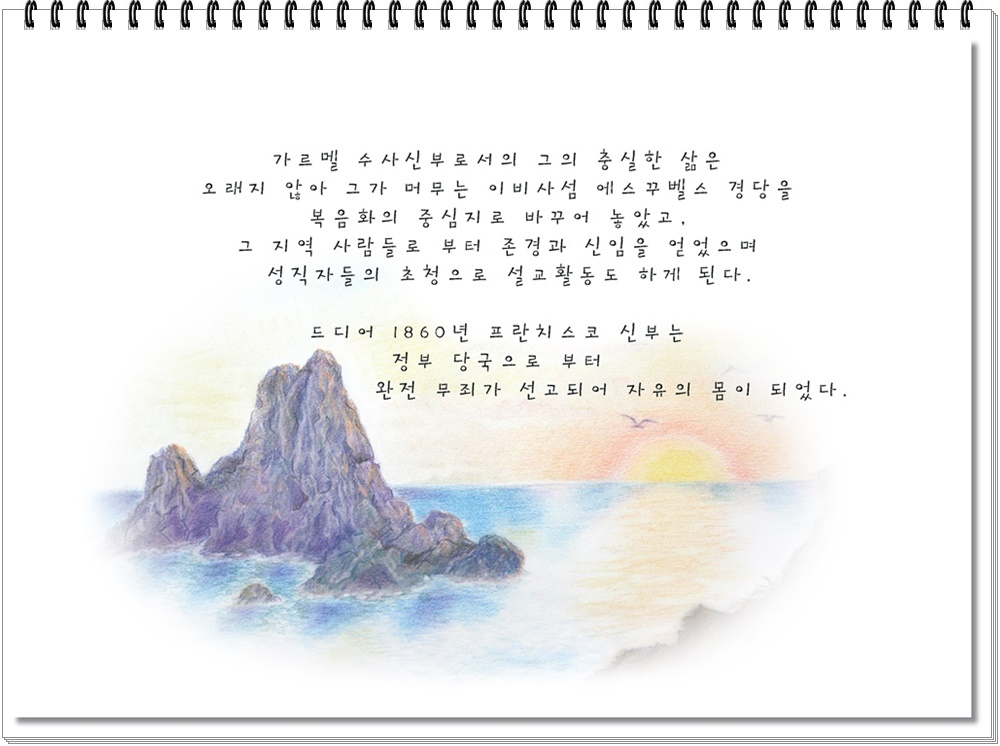 가르멜 수사신부로서의 그의 충실한 삶은
오래지 않아 그가 머무는 이비사섬 에스꾸벨스 경당을
복음화의 중심지로 바꾸어 놓았고,
그 지역 사람들로 부터 존경과 신임을 얻었으며
성직자들의 초청으로 설교활동도 하게 된다.
드디어 1860년 프란치스코 신부는
정부 당국으로 부터
완전 무죄가 선고되어 자유의 몸이 되었다.